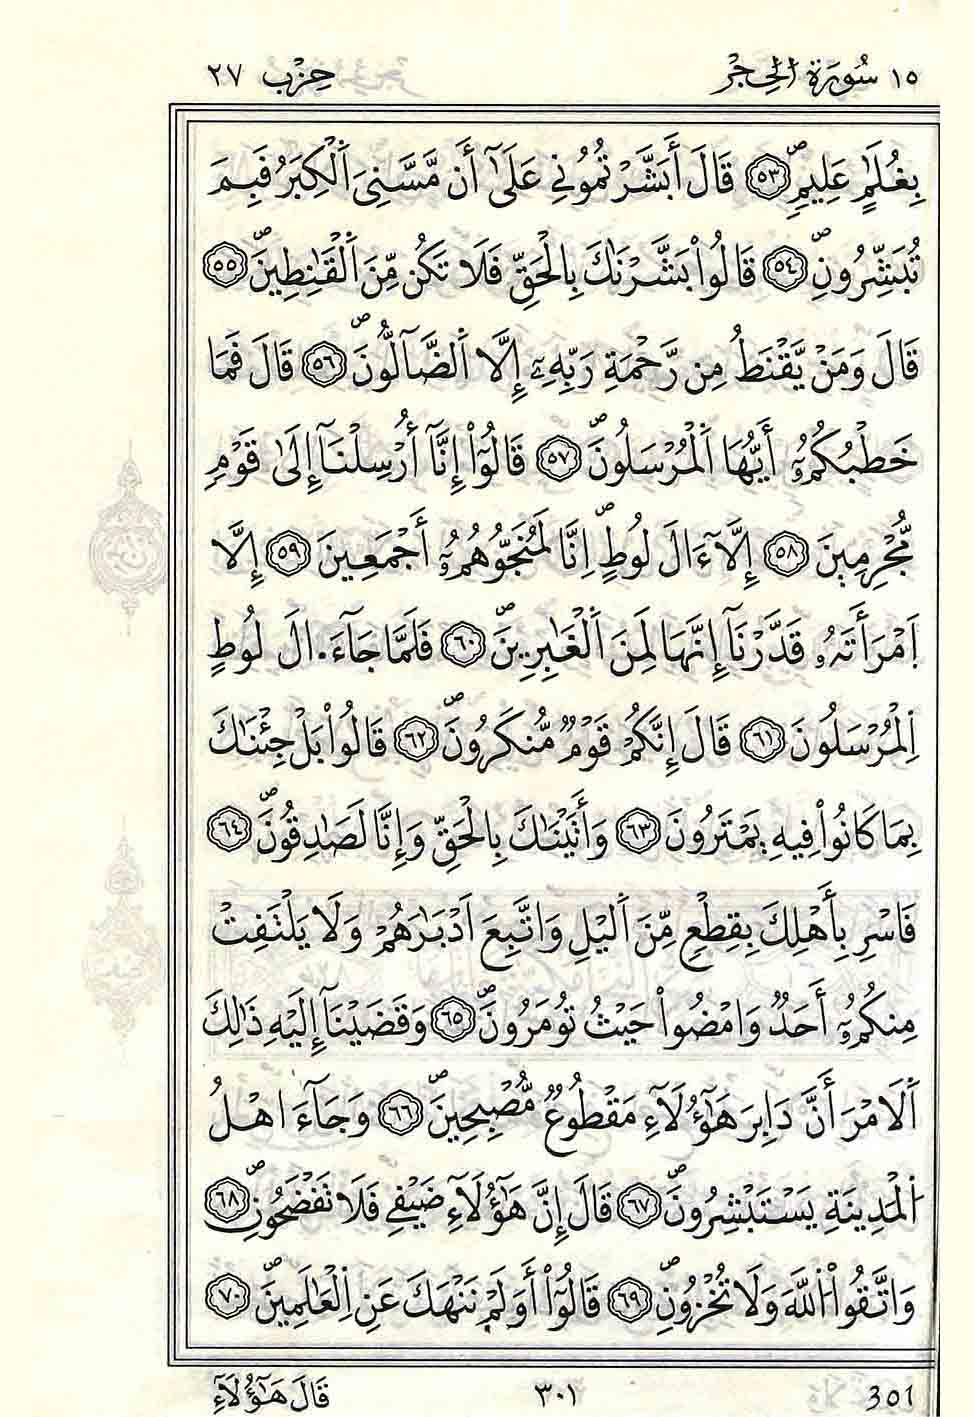 ١٥ سُورَةُ الْحِجْرِ حِزْب ٢٧
بِغُلَٰمٍ عَلِيمٍۖ ٥٣ قَالَ أَبَشَّرْتُمُونِي عَلَىٰٓ أَن مَّسَّنِيَ اَ۬لْكِبَرُ فَبِمَ
تُبَشِّرُونِۖ ٥٤ قَالُواْ بَشَّرْنَٰكَ بِالْحَقِّ فَلَا تَكُن مِّنَ اَ۬لْقَٰنِطِينَۖ ٥٥
قَالَ وَمَنْ يَّقْنَطُ مِن رَّحْمَةِ رَبِّهِۦٓ إِلَّا اَ۬لضَّآلُّونَۖ ٥٦ قَالَ فَمَا
خَطْبُكُمُۥٓ أَيُّهَا اَ۬لْمُرْسَلُونَۖ ٥٧ قَالُوٓاْ إِنَّآ أُرْسِلْنَآ إِلَىٰ قَوْمٖ
مُّجْرِمِينَ ٥٨ إِلَّآ ءَالَ لُوطٍۖ اِنَّا لَمُنَجُّوهُمُۥٓ أَجْمَعِينَ ٥٩ إِلَّا
اَ۪مْرَأَتَهُۥ قَدَّرْنَآ إِنَّهَا لَمِنَ اَ۬لْغَٰبِرِينَۖ ٦٠ فَلَمَّا جَآءَ اٰلَ لُوطٍ
اِ۬لْمُرْسَلُونَ ٦١ قَالَ إِنَّكُمْ قَوْمٞ مُّنكَرُونَۖ ٦٢ قَالُواْ بَلْ جِئْنَٰكَ
بِمَا كَانُواْ فِيهِ يَمْتَرُونَ ٦٣ وَأَتَيْنَٰكَ بِالْحَقِّ وَإِنَّا لَصَٰدِقُونَۖ ٦٤
فَاسْرِ بِأَهْلِكَ بِقِطْعٖ مِّنَ اَ۬ليْلِ وَاتَّبِعَ اَدْبَٰرَهُمْ وَلَا يَلْتَفِتْ
مِنكُمُۥٓ أَحَدٞ وَامْضُواْ حَيْثُ تُومَرُونَۖ ٦٥ وَقَضَيْنَآ إِلَيْهِ ذَٰلِكَ
اَ۬لَامْرَ أَنَّ دَابِرَ هَٰٓؤُلَآءِ مَقْطُوعٞ مُّصْبِحِينَۖ ٦٦ وَجَآءَ اهْلُ
اُ۬لْمَدِينَةِ يَسْتَبْشِرُونَۖ ٦٧ قَالَ إِنَّ هَٰٓؤُلَآءِ ضَيْفِي فَلَا تَفْضَحُونِۖ ٦٨
وَاتَّقُواْ اُ۬للَّهَ وَلَا تُخْزُونِۖ ٦٩ قَالُوٓاْ أَوَلَمْ نَنْهَكَ عَنِ اِ۬لْعَٰلَمِينَۖ ٧٠
301 ٣٠١ قَالَ هَٰٓؤُلَآءِ